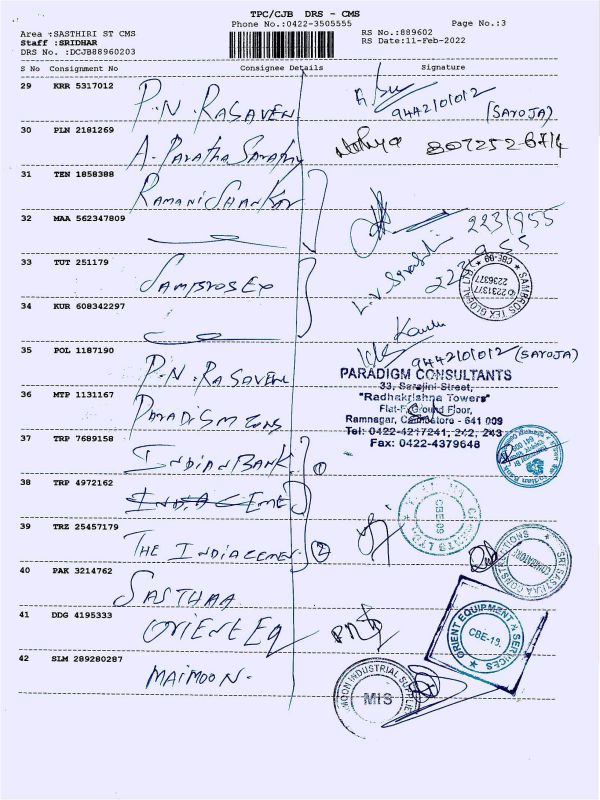 TPC/CJB DRS - CMS
Phone No.:0422-3505555
Page No.:3
Area :SASTHIRI ST CMS
RS No.:889602
Staff :SRIDHAR
RS Date:11-Feb-2022
DRS No. :DCJB88960203
S No Consignment No Consignee Details Signature
29 KRR 5317012 P.N. RASAVEN 9442101012 (SAROJA)
30 PLN 2181269 A. Paratha Sarathy 807252 6714
31 TEN 1858388 Ramani Shankar
32 MAA 562347809 2231955
33 TUT 251179 Sambros Ex L.V. 2231955
SAMBROS TEX GLOBAL (P) LTD CBE-09 ✆ 2231377 2236377
34 KUR 608342297
35 POL 1187190 P.N. RASAVEN 9442101012 (SAROJA)
PARADIGM CONSULTANTS
33, Sarojini Street,
"Radhakrishna Towers"
Flat-F, Ground Floor,
Ramnagar, Coimbatore - 641 009
Tel: 0422-4217241, 242, 243
Fax: 0422-4379648
36 MTP 1131167 Paradigm Cons
37 TRP 7689158 Indian Bank 1
38 TRP 4972162
39 TRZ 25457179 The India Cemen 2
CBE-09
40 PAK 3214762 SASTHAA
SRI SASTHAA CONSTRUCTIONS COIMBATORE
41 DDG 4195333 ORIENT EQ
ORIENT EQUIPMENT & SERVICES CBE-18.
42 SLM 289280287 MAIMOON.
MOON INDUSTRIAL SUPPLIE MIS